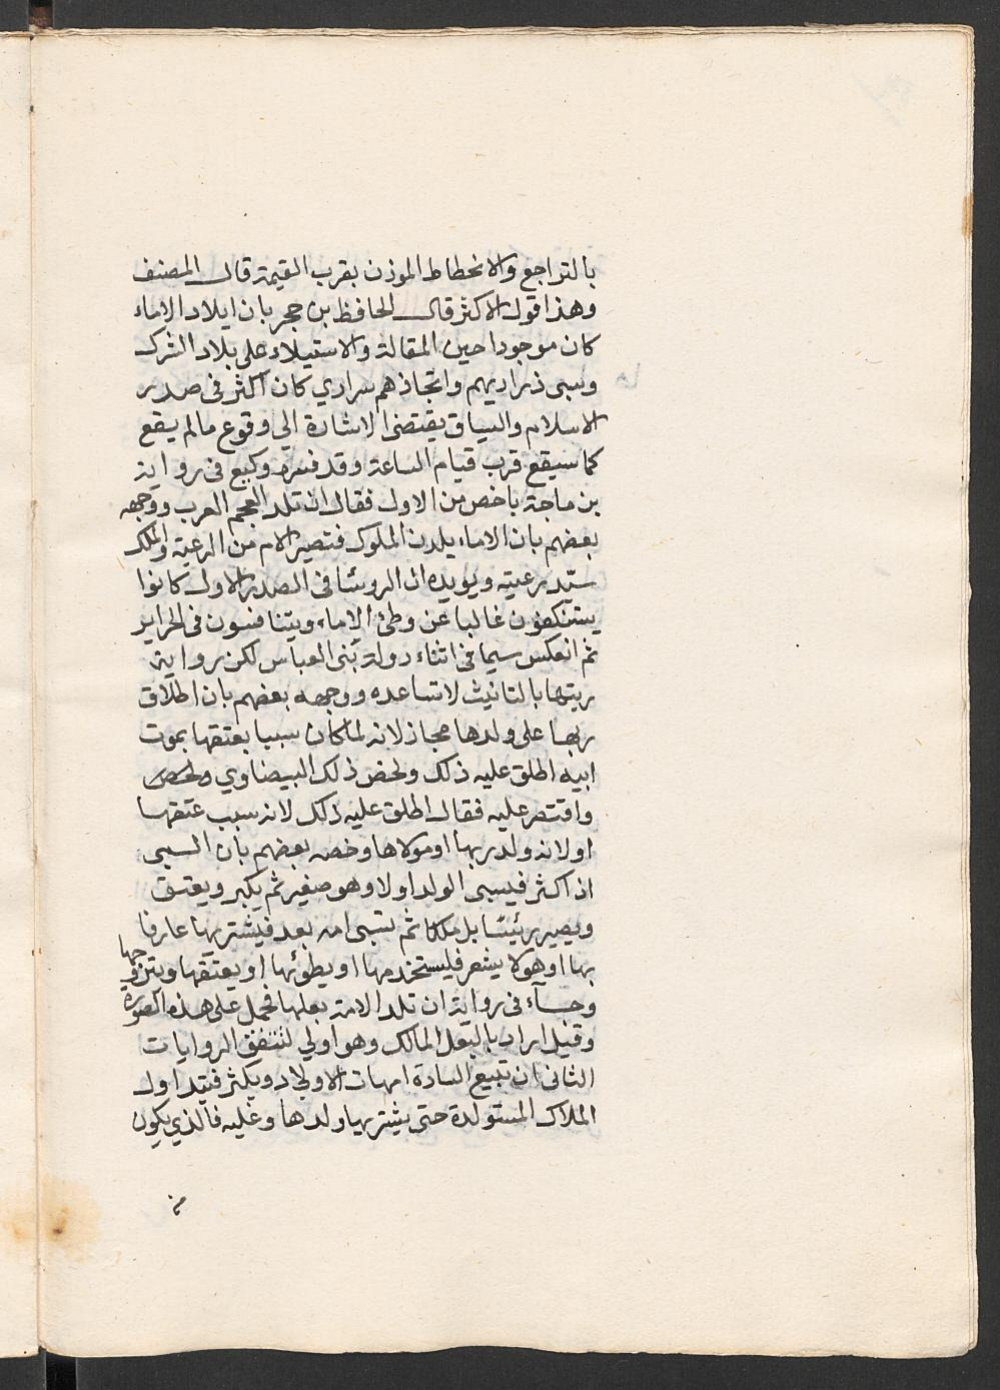 بالتراجع والانحطاط الموذن بقرب القيمة قال المصنف
وهذا قول الاكثر قال الحافظ بن حجر بان ايلاد الاماء
كان موجودا حين المقالة والاستيلاء على بلاد الشرك
وسبى ذراريهم واتخاذهم سراري كان اكثر فى صدر
الاسلام والسياق يقتضى الاشارة الي وقوع مالم يقع
كما سيقع قرب قيام الساعة وقد فسره وكيع فى رواية
بن ماجة باخص من الاول فقال ان تلد العجم العرب ووجهه
بعضهم بان الاماء يلدن الملوك فتصير الام من الرعية والملك
سيد رعيته ويويده ان الروسا فى الصدر الاول كانوا
يستنكفون غالبا عن وطئ الاماء ويتنافسون فى الحراير
ثم انعكس سيما فى اثناء دولة بنى العباس لكن رواية
ربتها بالتانيث لا تساعده ووجهه بعضهم بان اطلاق
ربها على ولدها مجاز لانه لما كان سببا بعتقها بموت
ابيه اطلق عليه ذلك ولخص ذلك البيضاوي
واقتصر عليه فقال اطلق عليه ذلك لانه سبب عتقها
اولانه ولد ربها او مولاها وخصه بعضهم بان السبى
اذا كثر فيسبى الولد اولا وهو صغير ثم يكبر ويعتق
ويصير رئيسا بل ملكا ثم تسبى امه بعد فيشتريها عارفا
بها او هو لا يشعر فليستخدمها او يطوئها او يعتقها ويتزوجها
وجاء فى رواية ان تلد الامة بعلها فحمل على هذه الصورة
وقيل اراد بالبعل المالك وهو اولي لتتفق الروايات
الثانى ان تبيع السادة امهات الاولاد ويكثر فيتداول
الملاك المستولدة حتى يشتريها ولدها وعليه فالذي يكون